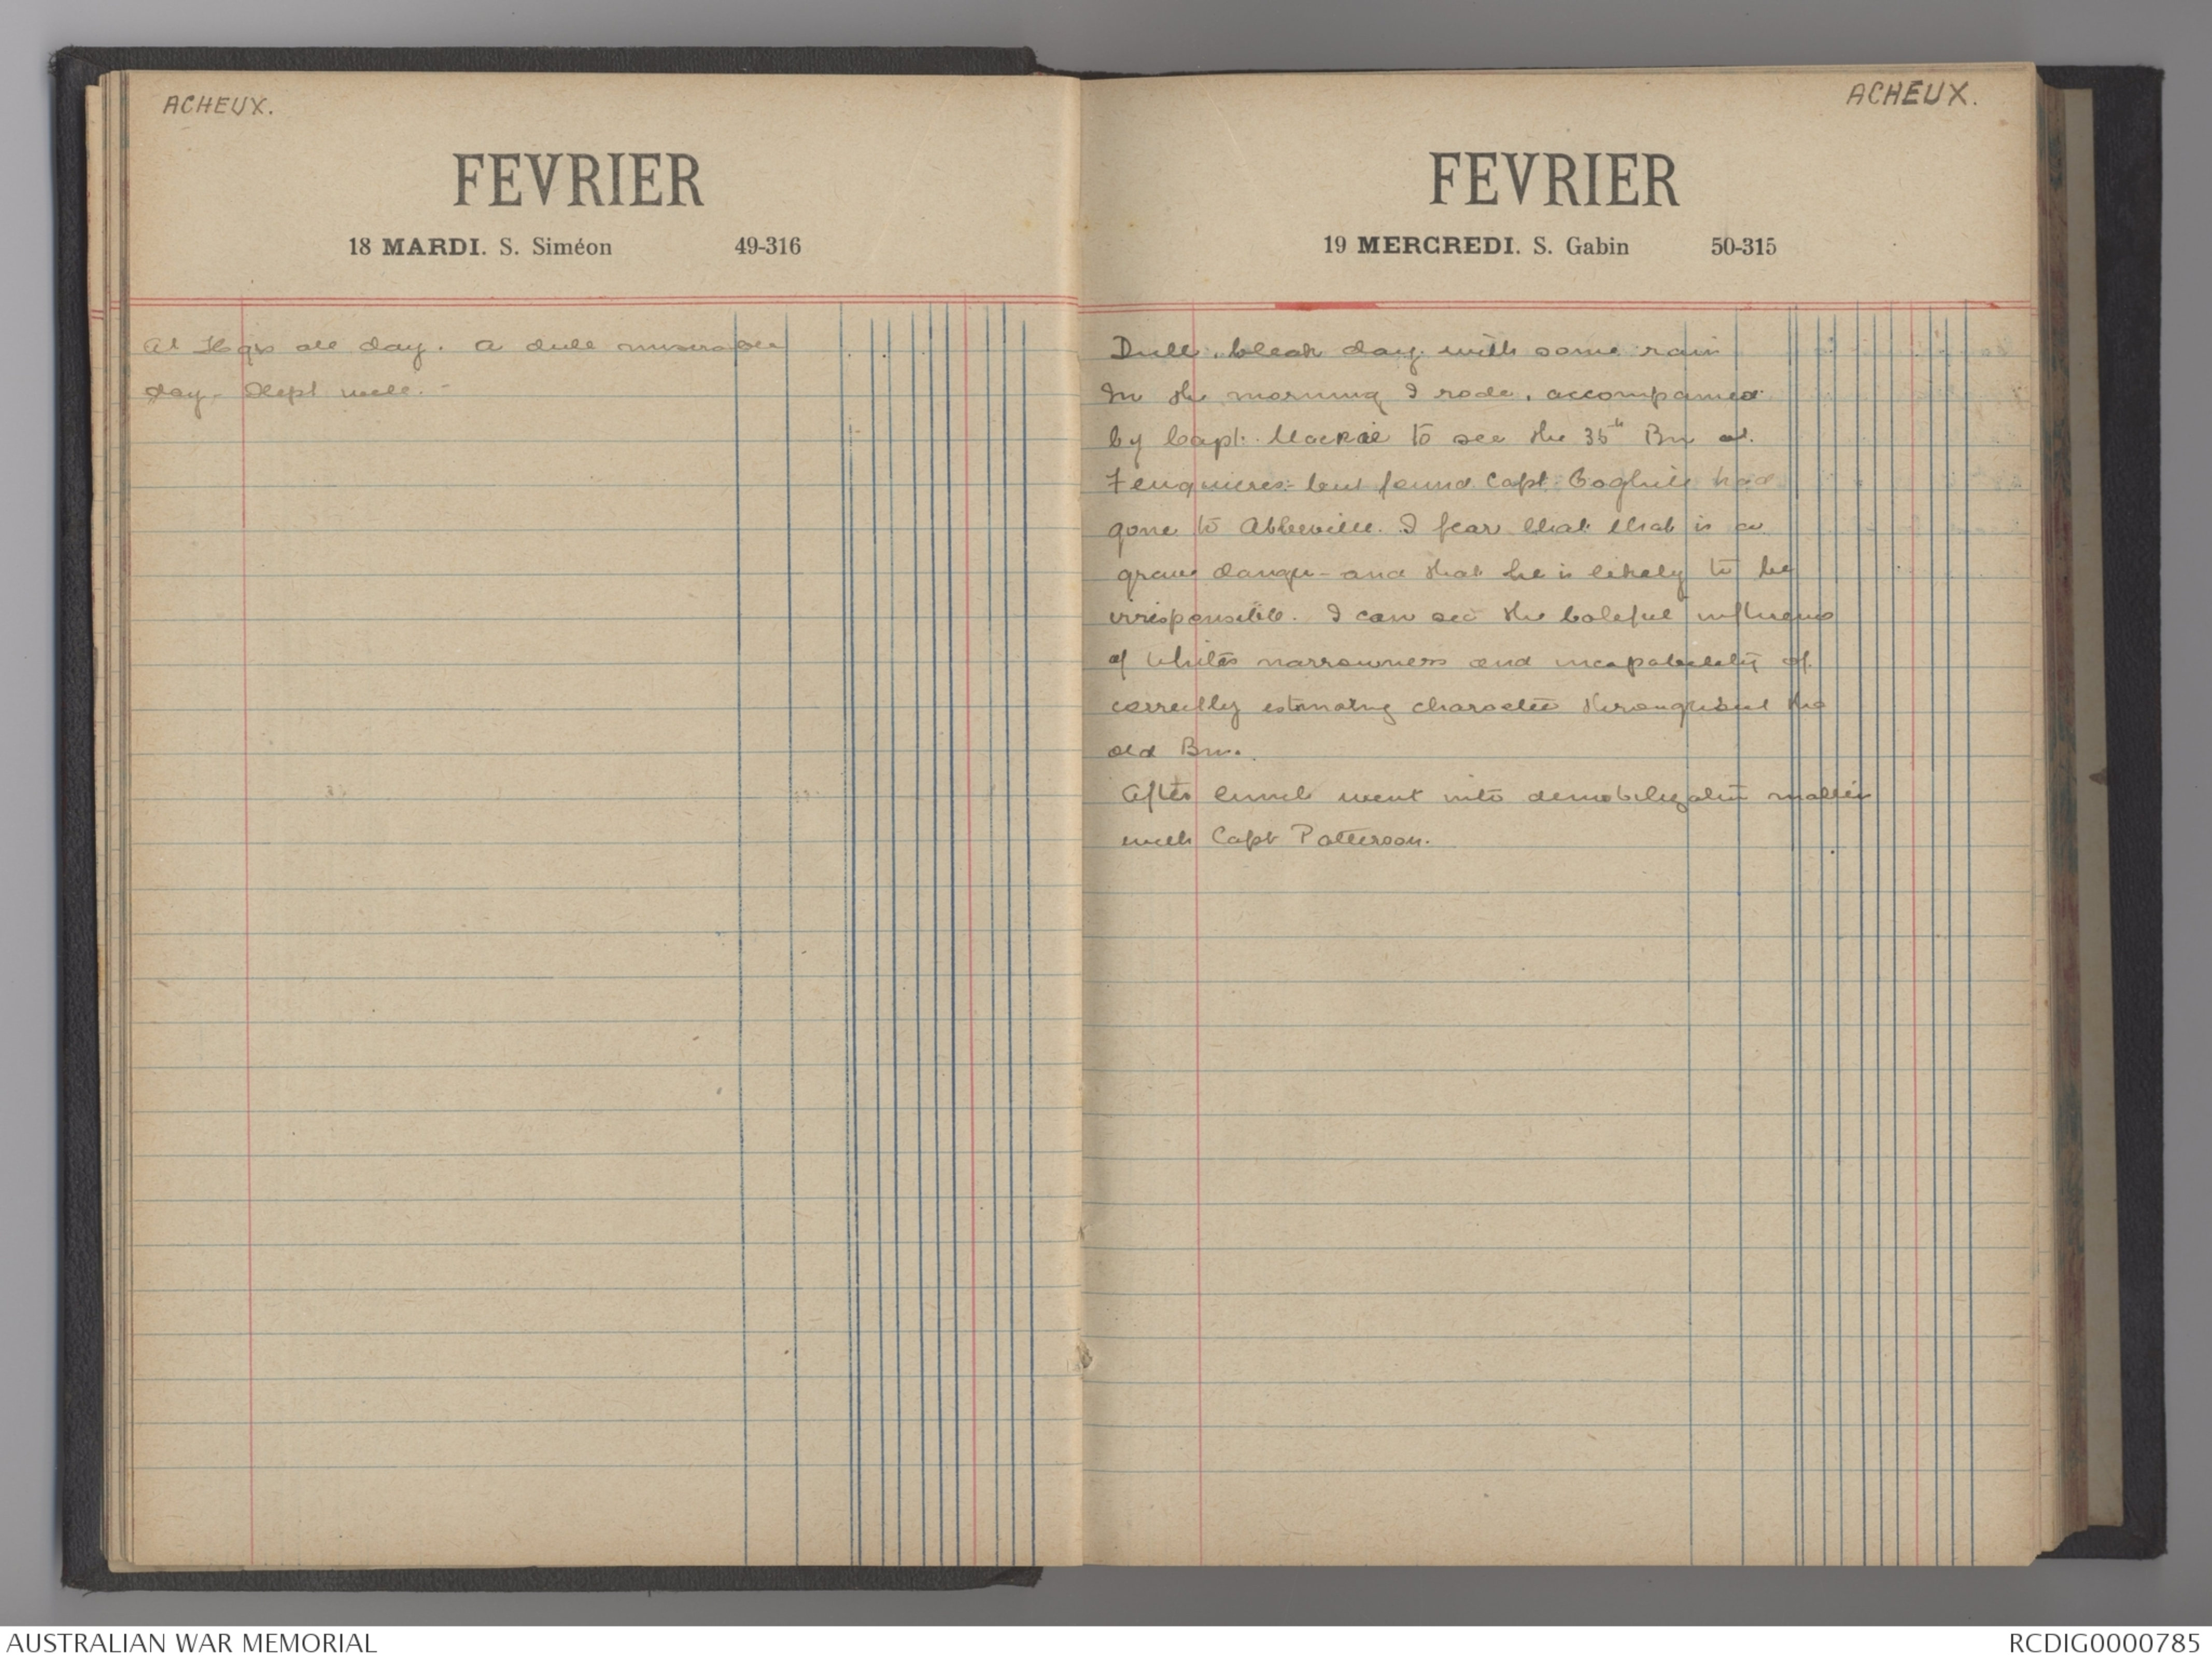 ACHEUX.
FEVRIER
18 MARDI. S. Siméon 49-316
At Hqrs all day. A dull miserable
day. Slept well. -
ACHEUX.
FEVRIER
19 MERCREDI. S. Gabin 50-315
Dull, bleak day with some rain
In the morning I rode, accompanied
by Capt. MacRae to see the 35th Bn at
Feuquieres - but found Capt. Coghill had
gone to Abbeville. I fear that that is a
grave danger - and that he is likely to be
irresponsible. I can see the baleful influence
of Whites narrowness and incapability of
correctly estimating character throughout the
old Bn.
After lunch went into demobilization matters
with Capt Patterson.
AUSTRALIAN WAR MEMORIAL
RCDIG0000785